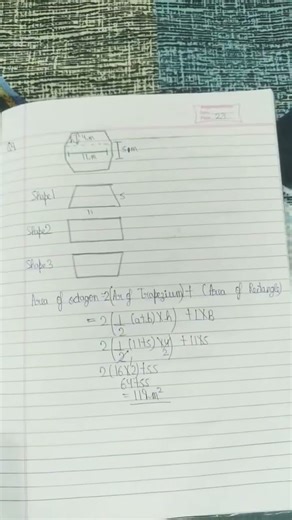 29
Q5
11m
5m
Shape1
5
11
Shape2
Shape3
Area of octagon = 2(Ar of Trapezium) + (Area of Rectangle)
= 2(1/2 (a+b) x h) + l x B
2(1/2 (11+5) x 4/2) + 11x5
2(16x2)+55
64+55
= 119 m²